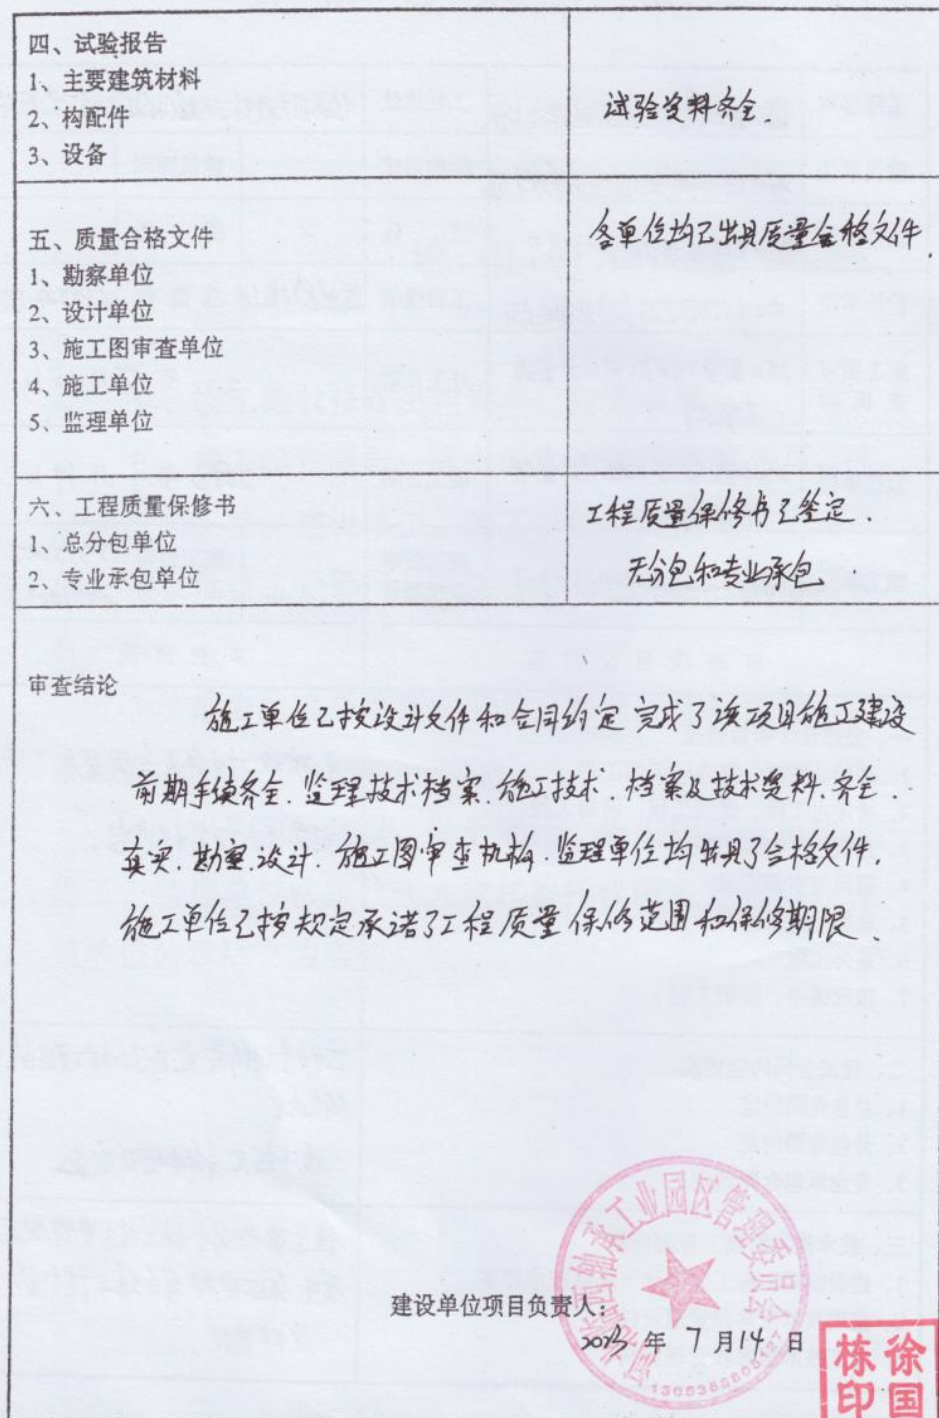 四、试验报告
1、主要建筑材料
2、构配件
3、设备
试验资料齐全.
五、质量合格文件
1、勘察单位
2、设计单位
3、施工图审查单位
4、施工单位
5、监理单位
各单位均已出具质量合格文件
六、工程质量保修书
1、总分包单位
2、专业承包单位
工程质量保修书已签定.
无分包和专业承包
审查结论
施工单位已按设计文件和合同约定完成了该项目施工建设
前期手续齐全.监理技术档案.施工技术.档案及技术资料.齐全.
真实.勘察.设计.施工图审查机构.监理单位均出具了合格文件.
施工单位已按规定承诺了工程质量保修范围和保修期限、
西轴承工业园区管理委员会
建设单位项目负责人:
2023 年 7月14 日
徐国栋印